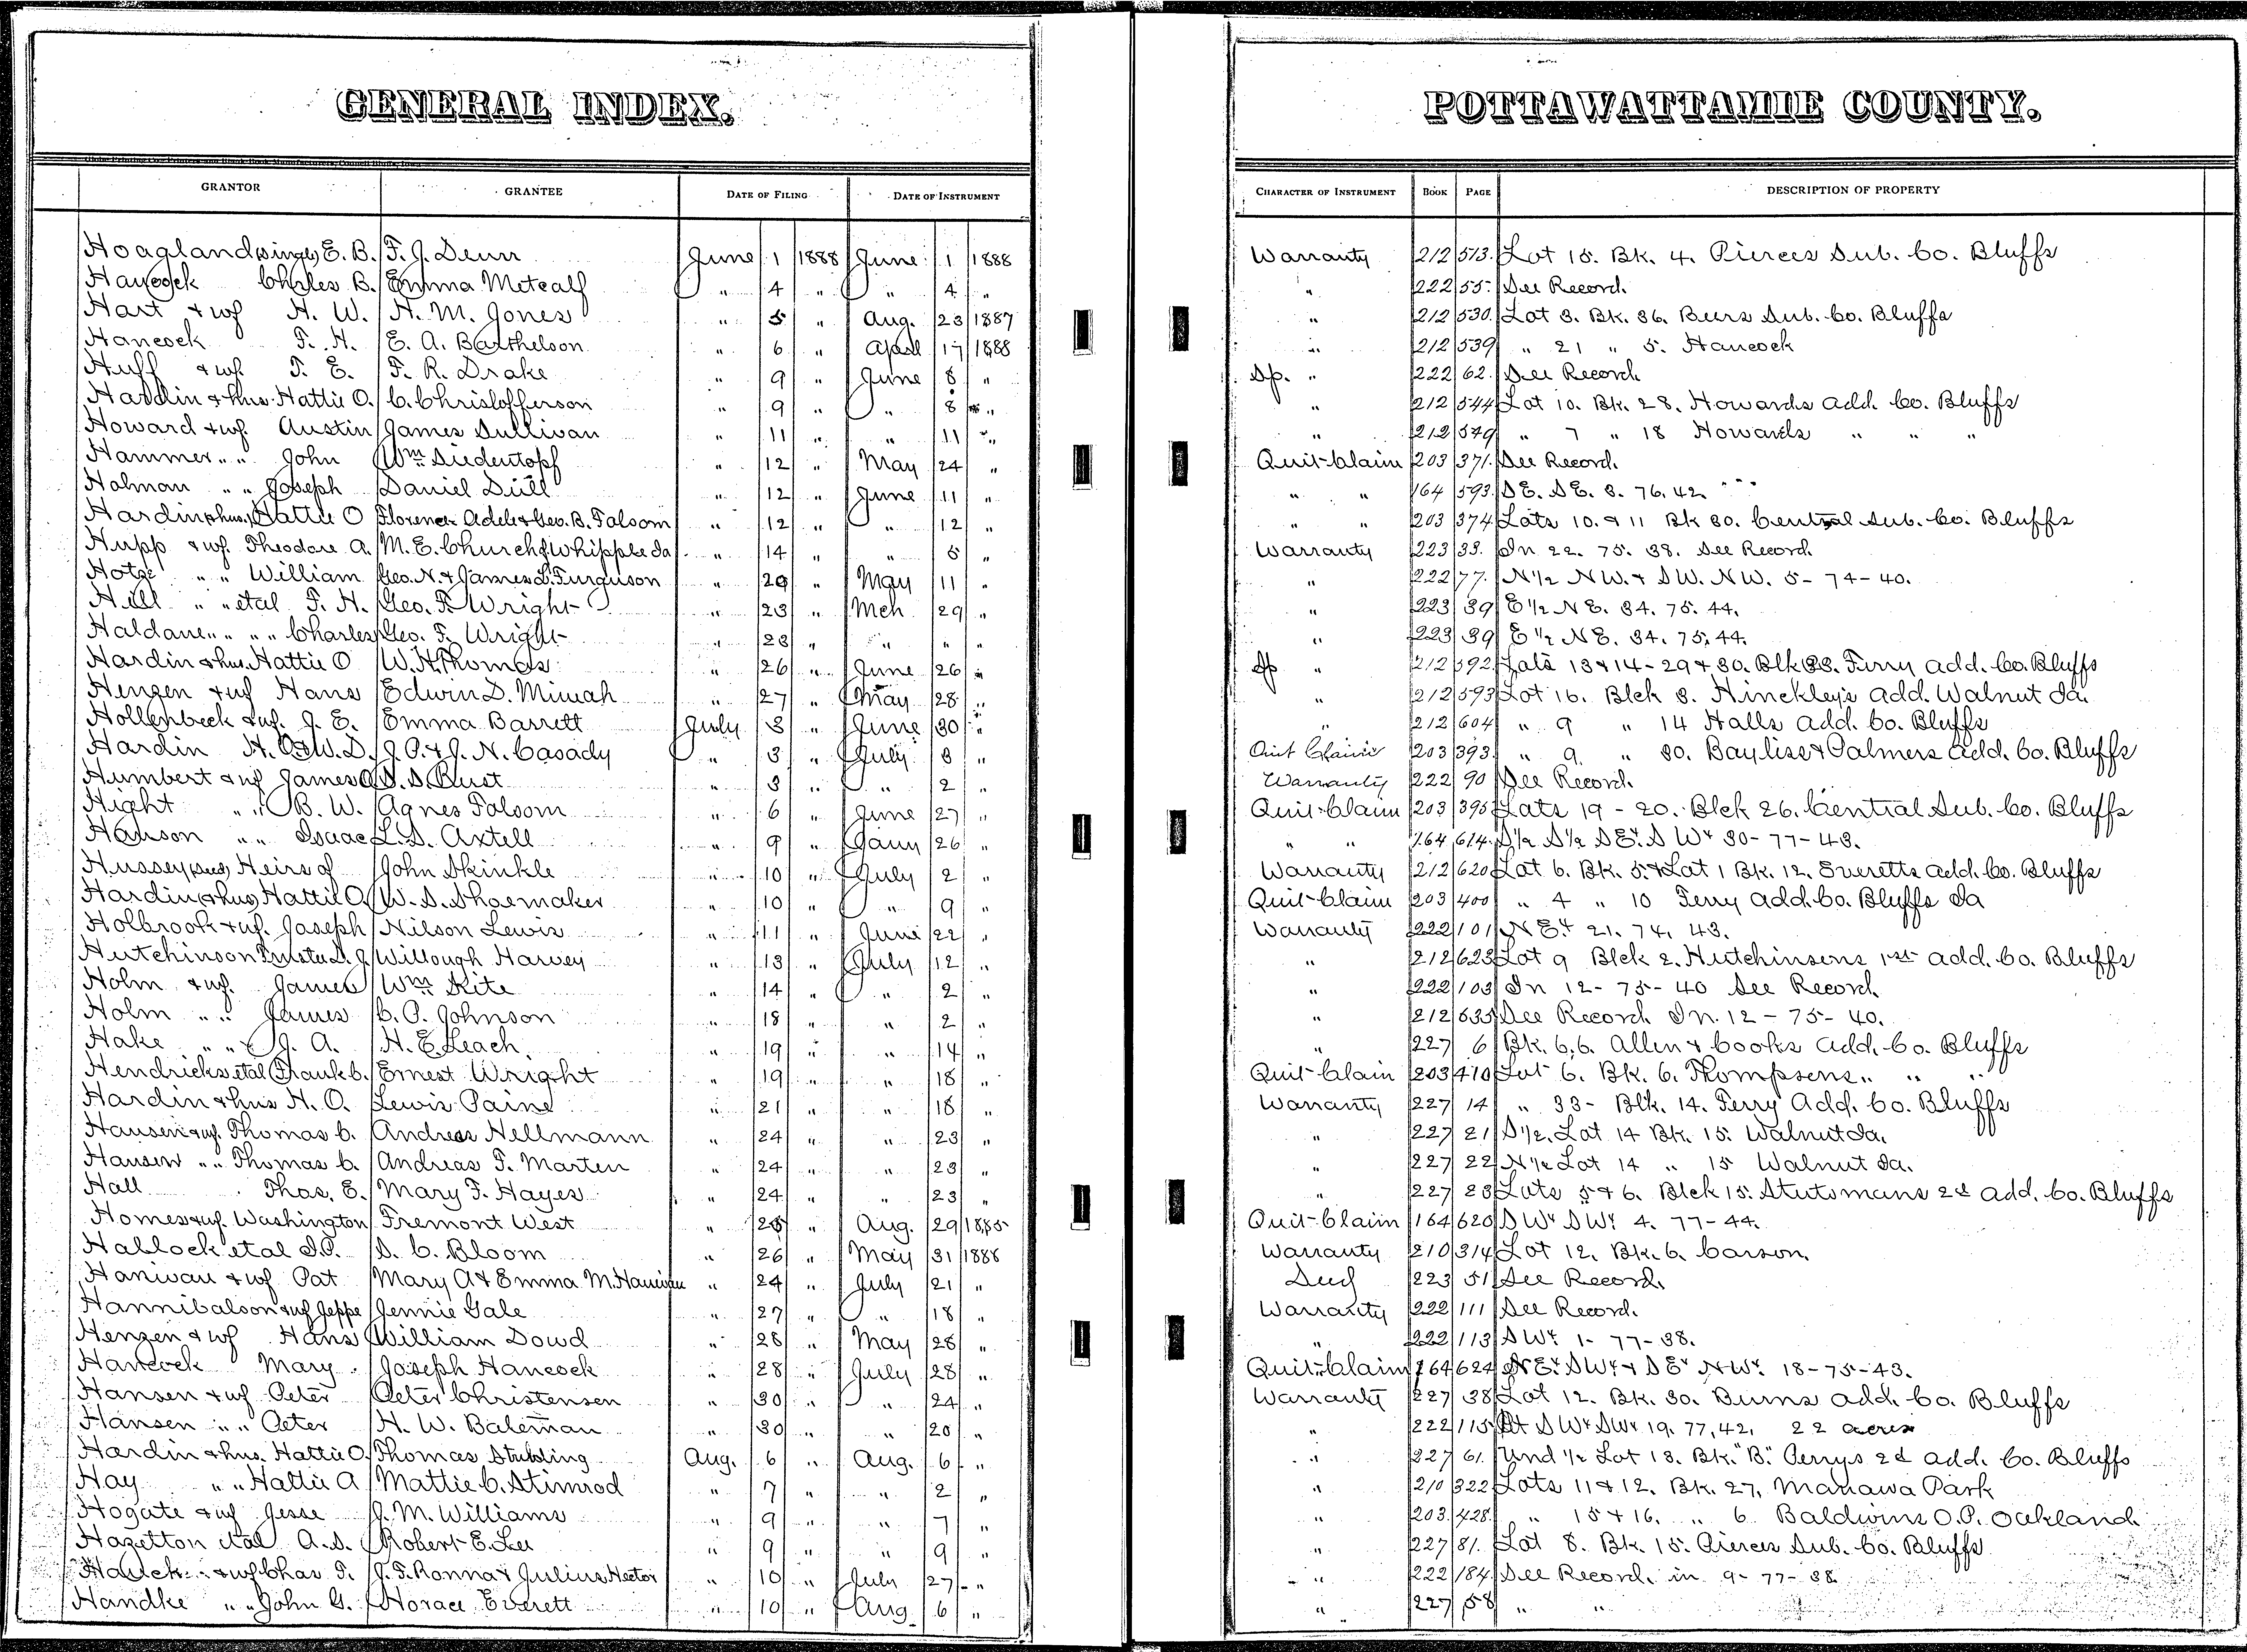 GENERAL INDEX.
POTTAWATTAMIE COUNTY.
GRANTOR GRANTEE DATE OF FILING DATE OF INSTRUMENT CHARACTER OF INSTRUMENT BOOK PAGE DESCRIPTION OF PROPERTY
Hoagland single, E. B. F. J. Denn June 1 1888 June 1 1888 Warranty 212 513. Lot 15. Bk. 4. Pierces Sub. Co. Bluffs
Hancock Chrles B. Emma Metcalf " 4 " " 4 " " 222 55. See Record.
Hart & wf H. W. H. M. Jones " 5 " Aug. 23 1887 " 212 530. Lot 3. Bk. 36. Beers Sub. Co. Bluffs
Hancock F. H. E. A. Barthelson " 6 " April 17 1888 " 212 539 " 21 " 5. Hancock
Huff & wf. T. E. F. R. Drake " 9 " June 8 " Sp. " 222 62. See Record
Hardin & hus. Hattie O. C. Christofferson " 9 " " 8 " " 212 544 Lot 10. Bk. 28. Howards Add. Co. Bluffs
Howard & wf. Austin James Sullivan " 11 " " 11 " " 212 549 " 7 " 18 Howards " " "
Hammer " " John Wm. Siedentopf " 12 " May 24 " Quit-Claim 203 371. See Record.
Holman " " Joseph Daniel Dull " 12 " June 11 " " " 164 593. SE. SE. 8. 76. 42. " " "
Hardin & hus. Hattie O Florence Adele & Geo. B. Folsom " 12 " " 12 " " " 203 374 Lots 10. & 11 Bk 30. Central Sub. Co. Bluffs
Hupp & wf. Theodore A. M. E. Church of Whipple Ia. " 14 " " 5 " Warranty 223 33. In 22. 75. 38. See Record.
Hotze " " William Geo. N. & James L. Furguson " 20 " May 11 " " 222 77. N 1/2 NW. & SW. NW. 5-74-40.
Hill " " etal F. H. Geo. F. Wright " 23 " Mch 29 " " 223 39 E 1/2 NE. 34. 75. 44.
Haldane " " " " Charles Geo. F. Wright " 23 " " " " " 223 39 E 1/2 NE. 34. 75, 44.
Hardin & hus. Hattie O W. H. Thomas " 26 " June 26 " Sp " 212 592 Lots 13 & 14-29 & 30. Blk 33. Ferry Add. Co. Bluffs
Henzen & wf Hans Edwin D. Miwah " 27 " May 28 " " 212 593 Lot 16. Blck 8. Hinckley's Add. Walnut Ia.
Hollenbeck & wf. J. E. Emma Barrett July 3 " June 30 " " 212 604 " 9 " 14 Halls Add. Co. Bluffs
Hardin H. O. & W. D. J. P. & J. N. Casady " 3 " July 3 " Quit Claim 203 393 " 9. " 30. Bayliss & Palmers Add. Co. Bluffs
Humbert & wf James A S. S. Rust " 3 " " 2 " Warranty 222 90 See Record.
Hight " " B. W. Agnes Folsom " 6 " June 27 " Quit-Claim 203 395 Lots 19-20. Blck 26. Central Sub. Co. Bluffs
Hanson " " Isaac L. S. Axtell " 9 " Jany 26 " " " 164 614. S 1/2 S 1/2 SE4. SW4 30-77-43.
Hussey (Decd) Heirs of John Skinkle " 10 " July 2 " Warranty 212 620 Lot 6. Bk. 5. & Lot 1 Bk. 12. Everetts Add. Co. Bluffs
Hardin & hus Hattie O. W. S. Shoemaker " 10 " " 9 " Quit-Claim 203 400 " 4 " 10 Ferry Add. Co. Bluffs Ia
Holbrook & wf. Joseph Nilson Lewis " 11 " June 22 " Warranty 222 101 NE4 21. 74. 43.
Hutchinson Willough Harvey " 13 " July 12 " " 212 623 Lot 9 Blck 2. Hutchinsons 1st Add. Co. Bluffs
Holm & wf. James Wm. Kite " 14 " " 2 " " 222 103 In 12-75-40 See Record
Holm " " James C. P. Johnson " 18 " " 2 " " 212 635 See Record In. 12-75-40.
Hake " " J. A. H. E. Leach. " 19 " " 14 " " 227 6 Bk. 6, 6. Allen & Cooks Add. Co. Bluffs
Hendricks etal Frank C. Ernest Wright " 19 " " 18 " Quit-Claim 203 410 Lot 6. Bk. 6. Thompsens " " "
Hardin & hus H. O. Lewis Paine " 21 " " 18 " Warranty 227 14 " 33- Blk. 14. Ferry Add. Co. Bluffs
Hansen & wf. Thomas C. Andreas Hellmann " 24 " " 23 " " 227 21 S 1/2. Lot 14 Bk. 15. Walnut Ia.
Hansen " " Thomas C. Andreas F. Marten " 24 " " 23 " " 227 22 N 1/2 Lot 14 " 15 Walnut Ia.
Hall Thos. E. Mary F. Hayes " 24 " " 23 " " 227 23 Lots 5 & 6. Blck 15. Stutsmans 2d Add. Co. Bluffs
Homes & wf. Washington Fremont West " 25 " Aug. 29 1885 Quit-Claim 164 620 SW4 SW4 4. 77-44.
Hallock etal I. P. S. C. Bloom " 26 " May 31 1888 Warranty 210 314 Lot 12. Bk. 6. Carson.
Hanivan & wf Pat Mary A & Emma M. Hanivan " 24 " July 21 " Deed 223 51 See Record.
Hannibalson & wf Jeppe Jennie Gale " 27 " " 18 " Warranty 222 111 See Record.
Henzen & wf Hans William Dowd " 28 " May 28 " " 222 113 SW4 1-77-38.
Hancock Mary. Joseph Hancock " 28 " July 28 " Quit-Claim 164 624 NE4 SW4 & SE4 NW4 18-75-43.
Hansen & wf Peter Peter Christensen " 30 " " 24 " Warranty 227 38 Lot 12. Bk. 30. Burns Add. Co. Bluffs
Hansen " " Peter H. W. Bateman " 30 " " 20 " " 222 115 Pt SW4 SW4 19. 77, 42, 22 acres
Hardin & hus. Hattie O. Thomas Stubling Aug. 6 " Aug. 6 " " 227 61. Und 1/2 Lot 13. Bk. "B." Perrys 2d Add. Co. Bluffs
Hay " " Hattie A Mattie C. Stimrod " 7 " " 2 " " 210 322 Lots 11 & 12. Bk. 27, Manawa Park
Hogate & wf Jesse J. M. Williams " 9 " " 7 " " 203. 428. " 15 & 16. " 6 Baldwins O. P. Oakland.
Hazelton etal A. S. Robert E. Lee " 9 " " 9 " " 227 81. Lot 8. Bk. 15. Pierces Sub. Co. Bluffs
& wf Chas F. J. F. Ronna & Julius Hector " 10 " July 27 " " 222 184. See Record. in 9-77-38.
Handke " " John G. Horace Everett " 10 " Aug 6 " " 227 58 " "